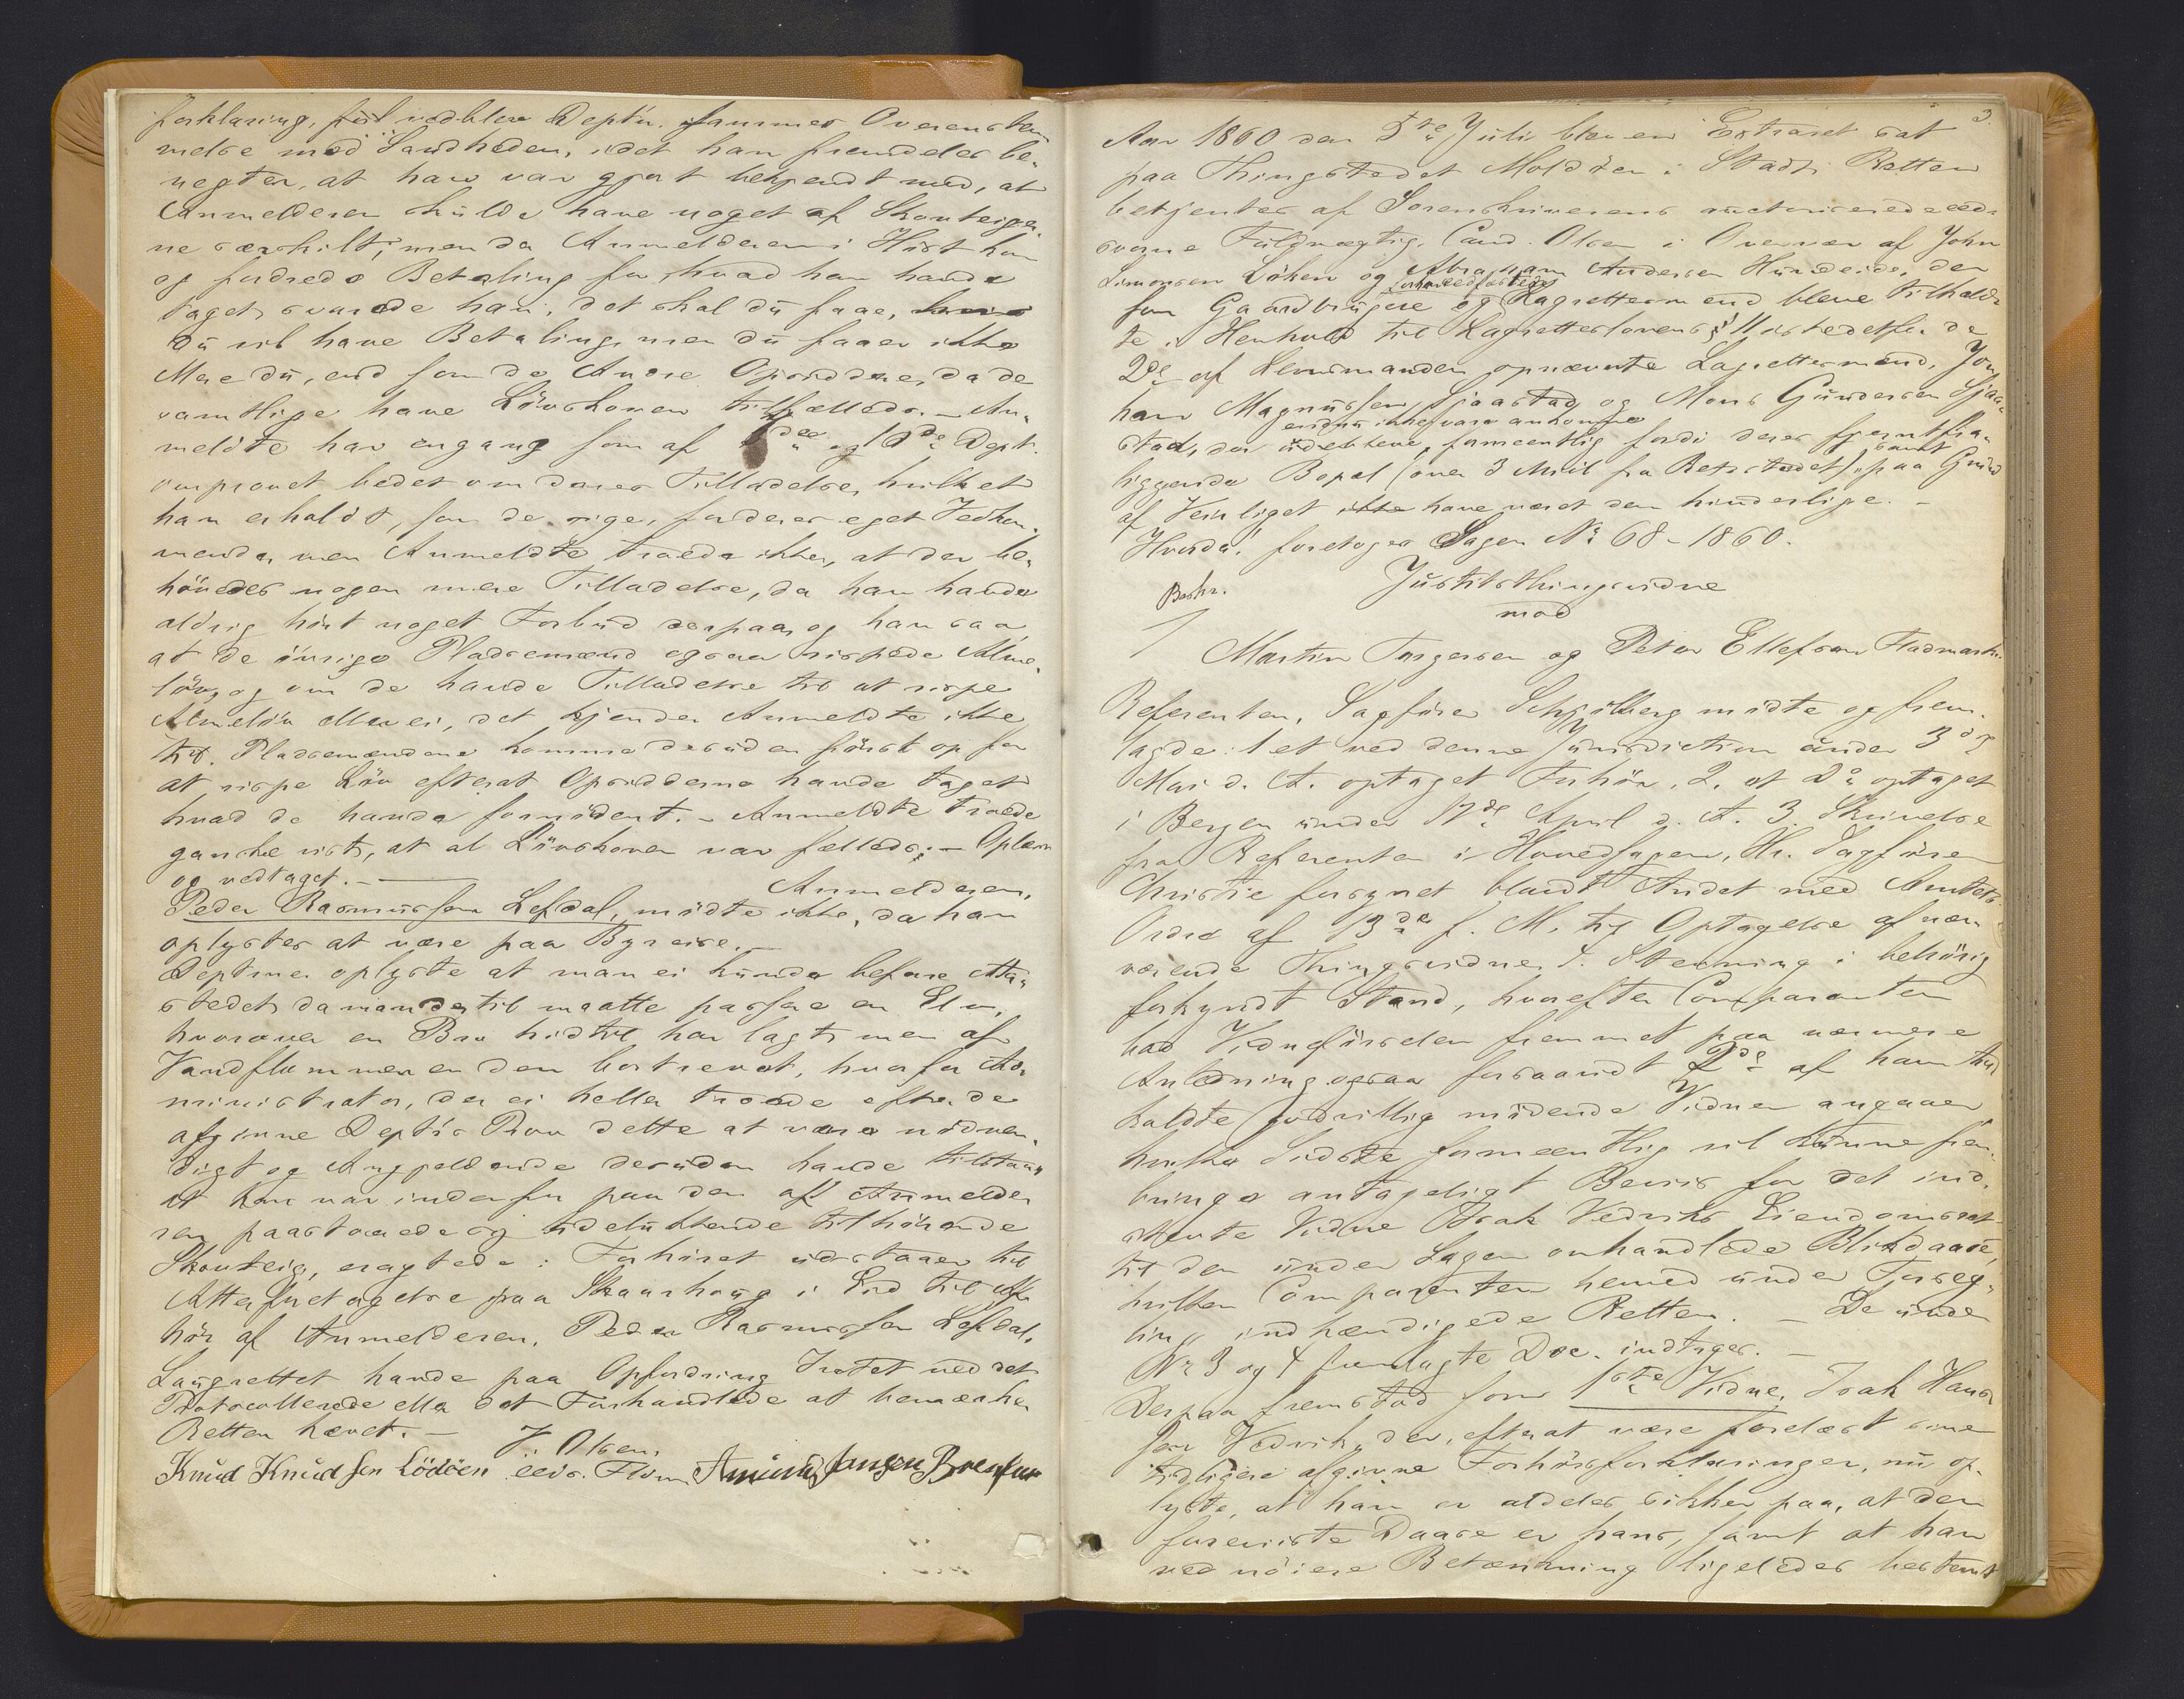 forklaring, fuldvedblev Deptn. sammes Overensstem-
melse med Sandheden, idet han fremdeles be-
negter, at han var gjort bekjendt med, at
Anmelderen skulde have noget af Skovteigen-
ne særskilt; men da Anmelderen i Høst kom
og fordrede Betaling for hvad han havde
taget, svarede han, det skal du faae,
du vil have Betaling, men du faaer ikke
Mere du, end som de Andre Opsiddere, da de
samtlige have Løvskoven tilfælleds. - An-
meldte har engang som af 6de og 10de Dept.
omprovet bedet om deres Tilladelse, hvilket
han erholdt, som de sige, for deres eget Vedkom-
mende, men Anmeldte troede ikke, at der be-
høvedes nogen mere Tilladelse, da han havde
aldrig hørt noget Forbud derpaa, og han saa
at de øvrige Pladsemænd ogsaa rispede Alme-
løv, og om de havde Tilladelse til at rispe
Almeløv eller ei, det kjender Anmeldte ikke
til. Pladsemændene komme desuden først op for
at rispe Løv efterat Opsidderne havde taget
hvad de havde fornødent. - Anmeldte troede
ganske vist, at al Løvskoven var fælleds; - Oplæst
og vedtaget. - Anmelderen,
Peder Rasmussen Lefdal, mødte ikke, da han
oplystes at være paa Byreise. -
Deptrne oplyste at man ei kunde befare Aa-
stedet, da man dertil maatte passere en Elv,
hvorover en Bro hidtil har lagt, men af
Vandflommen er den bortrevet, hvorfor Ad-
ministrator, der ei heller troede efter de
afgivne Deptrs Prov dette at være nødven-
digt og Angjeldende desuden havde tilstaaet
at han var indenfor paa den af Anmelde-
ren paastaaede og udelukkende tilhørende
Skovteig, eragtede: Forhøret udstaaer til
Atterforetagelse paa Skaarhaug i Eid til Af-
hør af Anmelderen, Peder Rasmussen Lefdal.
Laugrettet havde paa Opfordring Intet ved det
Protocollerede eller det Forhandlede at bemærke.
Retten hævet. - J. Olsen,
Knud Knudsen Lödöen eeds. Fldm. Amund Jensen
3.
Aar 1860 den 5te Juli blev en Extraret sat
paa Thingstedet Moldöen i Stadt. Retten
betjentes af Sorenskriverens auctoriserede eed-
svorne Fuldmægtig, Cand. Olsen i Overvær af John
Simonsen Löken og Abraham Andersen Hundeide, der
som Gaardbrugere og edfæstede Lagrettesmænd bleve tilkald-
te i Henhold til Lagretteslovens § 11 istedetfor de
2de af Lensmanden opnævnte Lagrettesmænd, Jo-
han Magnussen Sjaastad og Mons Gundersen Sjaa-
endnu ikke vare ankomne
stad, der udebleve, formeentlig fordi deres fjerntfra-
liggende Bopæl (over 3 Miil fra Retsstedet) samt paa Grund
af Veirliget have været dem hinderlige. -
Hvorda! foretoges Sagen No 68 - 1860.
Beskr.
Justitsthingsvidne
mod
Martin Torgersen og Peter Ellefsen Fladmark.
Referenten, Sagfører Schjölberg mødte og frem-
lagde: 1 et ved denne Jurisdiction under 3die
Mai d. A. optaget Forhør, 2. et Do optaget
i Bergen under 17de April d. A. 3. Skrivelse
fra Referenten i Hovedsagen, Hr. Sagfører
Christie forsynet blandt Andet med Amtets
Ordre af 13de f. M. til Optagelse af nær-
værende Thingsvidne, 4. Stevning i behørig
forkyndt Stand, hvorefter Comparenten
bad Vidneførselen fremmet paa nærmere
Anledning ogsaa forsaavidt 2de af ham tid
kaldte godvillig mødende Vidner angaaer
hvilke Sidste formeentlig vil kunne frem-
bringe antageligt Beviis for det ind-
stevnte Vidne Isak Vedviks Eiendomsret
til den under Sagen omhandlede Blikdaase,
hvilken Comparenten hermed under Forseg-
ling indhændigede Retten. - De under
No 3 og 4 fremlagte Doc. indtages. -
Derpaa fremstod som 1ste Vidne, Isak Han-
sen Vedvik, der, efterat være forelæst sine
tidligere afgivne Forhørsforklaringer, nu op-
lyste, at han er aldeles sikker paa, at den
foreviste Daase er hans, samt at han
ved nøiere Betænkning ligeledes bestemt